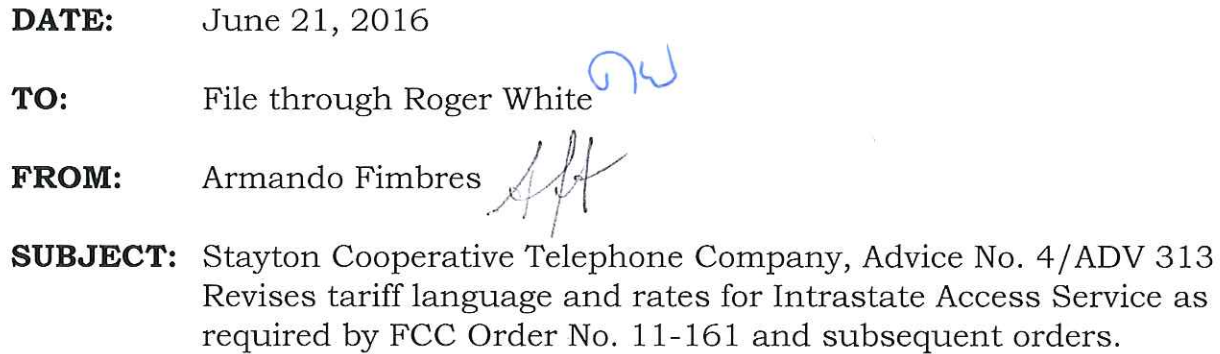 DATE: June 21, 2016
TO: File through Roger White
FROM: Armando Fimbres
SUBJECT: Stayton Cooperative Telephone Company, Advice No. 4/ADV 313
Revises tariff language and rates for Intrastate Access Service as
required by FCC Order No. 11-161 and subsequent orders.